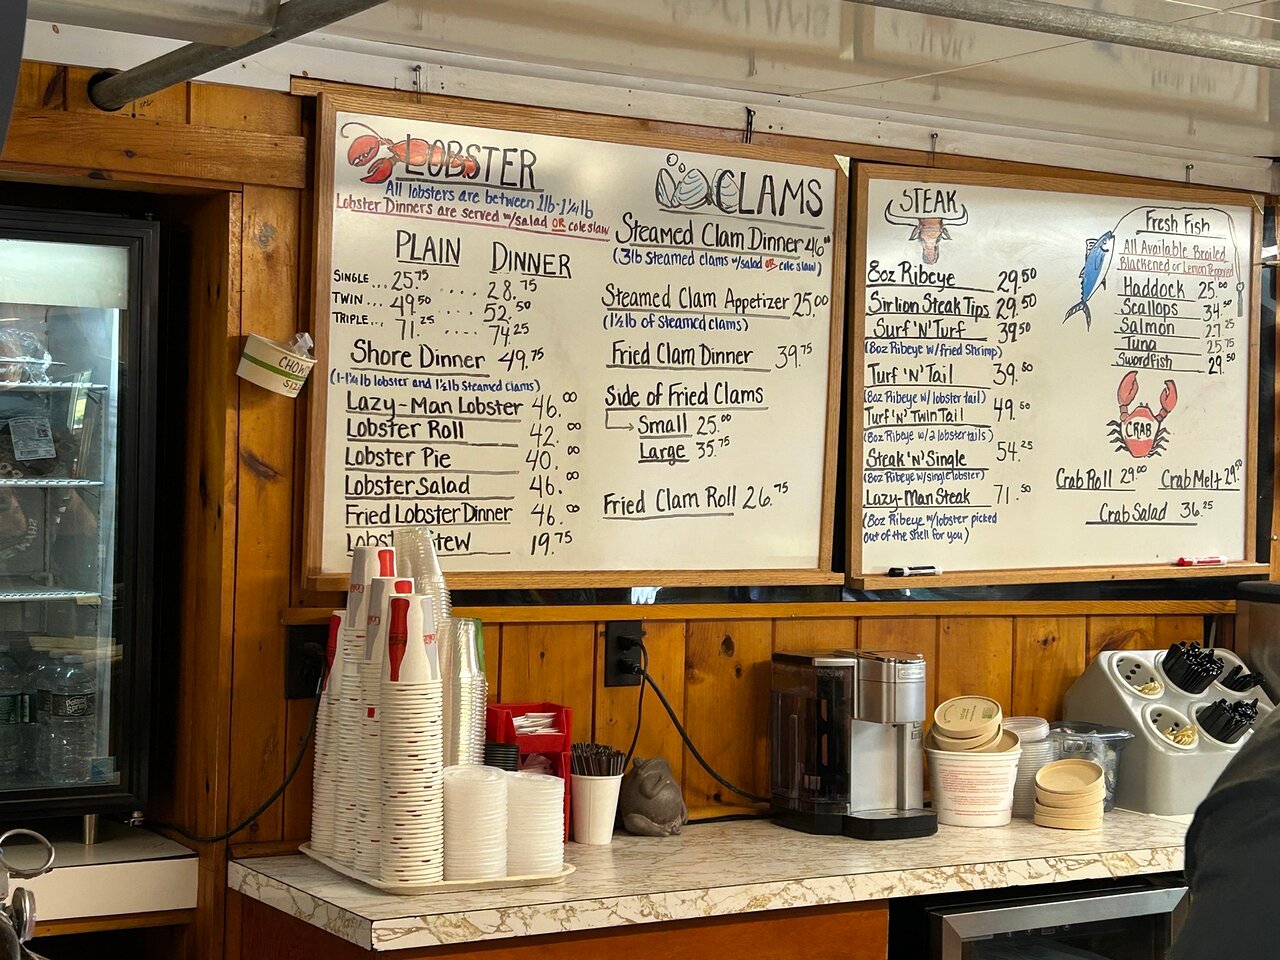 LOBSTER
All lobsters are between 1lb-1¼lb
Lobster Dinners are served w/salad OR coleslaw
PLAIN DINNER
SINGLE... 25.75 .... 28.75
TWIN... 49.50 .... 52.50
TRIPLE... 71.25 .... 74.25
Shore Dinner 49.75
(1-1¼lb lobster and 1½lb Steamed clams)
Lazy-Man Lobster 46.00
Lobster Roll 42.00
Lobster Pie 40.00
Lobster Salad 46.00
Fried Lobster Dinner 46.00
19.75
CLAMS
Steamed Clam Dinner 46.00
(3lb Steamed clams w/salad OR coleslaw)
Steamed Clam Appetizer 25.00
(1½lb of Steamed clams)
Fried Clam Dinner 39.75
Side of Fried Clams
Small 25.00
Large 35.75
Fried Clam Roll 26.75
STEAK
8oz Ribeye 29.50
Sirlion Steak Tips 29.50
Surf 'N' Turf 39.50
(8oz Ribeye w/fried Shrimp)
Turf 'N' Tail 39.50
(8oz Ribeye w/lobster tail)
Turf 'N' Twin Tail 49.50
(8oz Ribeye w/2 lobster tails)
Steak 'N' Single 54.25
(8oz Ribeye w/single lobster)
Lazy-Man Steak 71.50
(8oz Ribeye w/lobster picked
out of the shell for you)
Fresh Fish
All Available Broiled
Blackened or Lemon Peppered
Haddock 25.00
Scallops 34.50
Salmon 27.25
Tuna 25.75
Swordfish 29.50
CRAB
Crab Roll 29.00
Crab Melt 29.50
Crab Salad 36.25
CHOW
SIZE
Poland
Spring